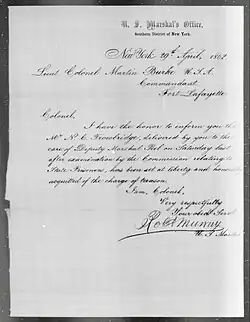 U. S. Marshal's Office,
Southern District of New York.
New York 29th April, 1862
Lieut Colonel Martin Burke U.S.A.
Commandant,
Fort Lafayette
Colonel,
I have the honor to inform you that
Mr N. C. Trowbridge, delivered by you to the
care of Deputy Marshal on Saturday last
after examination by the Commission relating to
State Prisoners, has been set at liberty and honorably
acquitted of the charge of treason.
I am, Colonel,
Very respectfully
Your obdt Servt
Robt Murray
U. S. Marshal